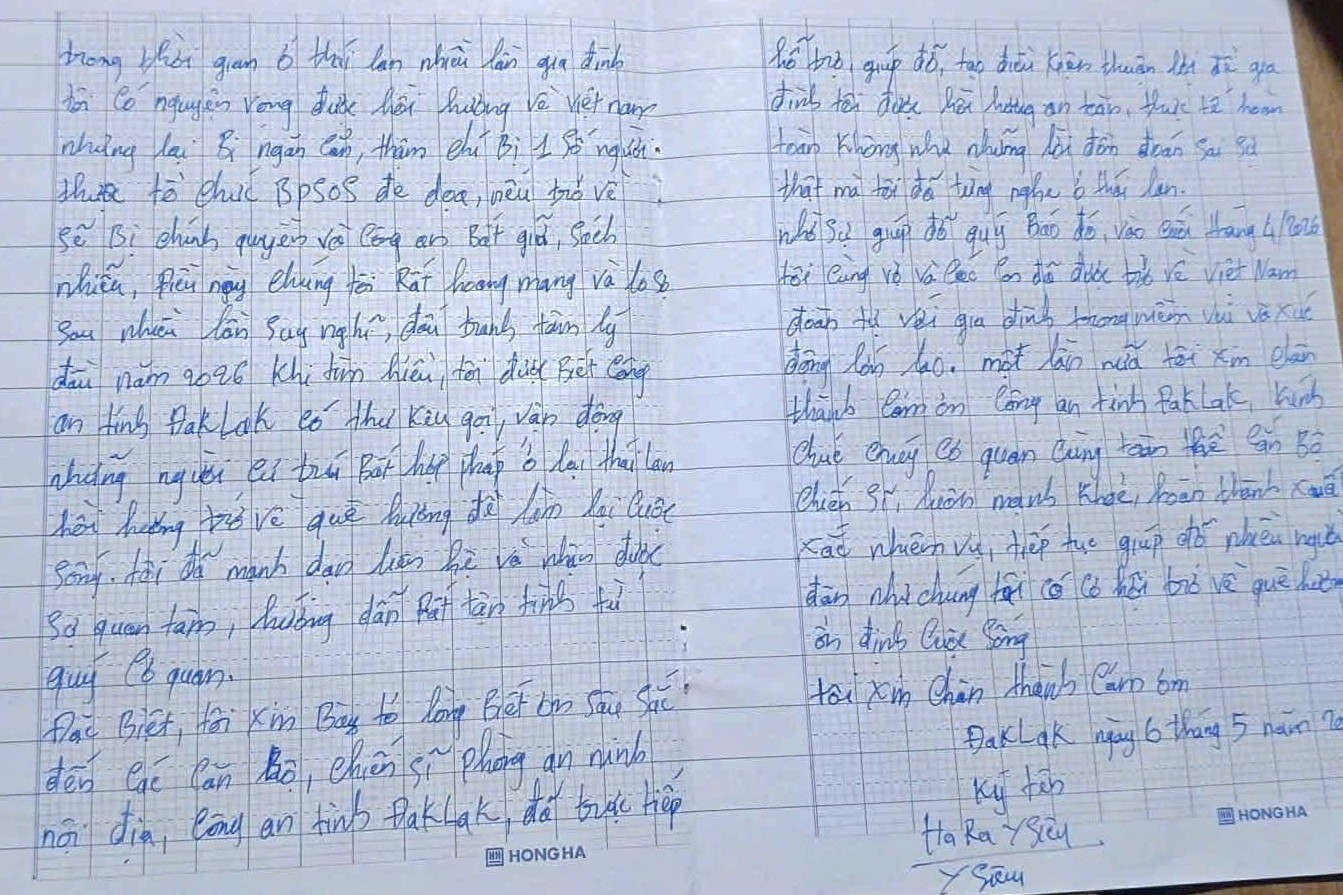 trong thời gian ở thái lan nhiều lần gia đình
tôi có nguyện vọng được hồi hương về việt nam
nhưng lại Bị ngăn cản, thậm chí Bị 1 số người
thuộc tổ chức BPSOS đe dọa, nếu trở về
sẽ Bị chính quyền và công an Bắt giữ, sách
nhiễu, điều này chúng tôi Rất hoang mang và lo sợ
Sau nhiều lần suy nghĩ, đấu tranh tâm lý
đầu năm 2026 khi tìm hiểu, tôi được Biết công
an tỉnh ĐakLak có thư kêu gọi, vận động
những người cư trú Bất hợp pháp ở lại thái lan
hồi hương trở về quê hương để làm lại cuộc
sống. tôi đã mạnh dạn liên hệ và nhận được
sự quan tâm, hướng dẫn Rất tận tình từ
quý cơ quan.
Đặc Biệt, tôi xin Bày tỏ lòng Biết ơn sâu sắc
đến các cán bộ, chiến sĩ phòng an ninh
nội địa, công an tỉnh ĐakLak, đã trực tiếp
HONG HA
hỗ trợ, giúp đỡ, tạo điều kiện thuận lợi để gia
đình tôi được hồi hương an toàn, thực tế hoàn
toàn không như những lời đồn đoán sai sự
thật mà tôi đã từng nghe ở thái lan.
nhờ sự giúp đỡ quý Báo đó, vào cuối tháng 4/2026
tôi cùng vợ và các con đã được trở về việt Nam
đoàn tụ với gia đình trong niềm vui và xúc
động lớn lao. một lần nữa tôi xin chân
thành cảm ơn công an tỉnh ĐakLak, kính
chúc quý cơ quan cùng toàn thể cán Bộ
chiến sĩ, luôn mạnh khoẻ, hoàn thành xuất
xắc nhiệm vụ, tiếp tục giúp đỡ nhiều người
dân như chúng tôi có cơ hội trở về quê hương
ổn định cuộc sống
tôi xin chân thành cảm ơn
ĐakLak ngày 6 tháng 5 năm 20
ký tên
HaRa Y Siêu
Y Siêu
HONG HA